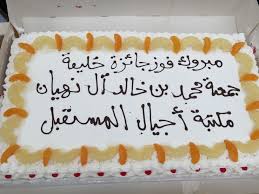 مبروك فوز جائزة خليفة
جمعية محمد بن خالد آل نهيان
مكتبة أجيال المستقبل